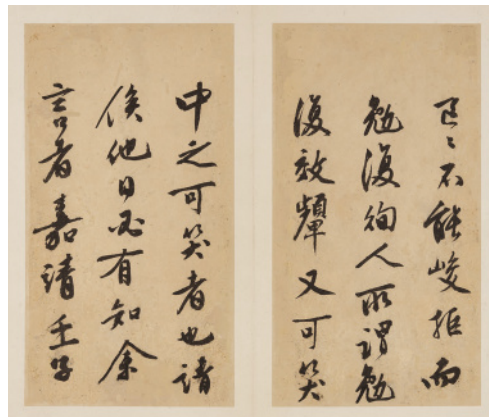 不能峻拒而
勉復徇人所謂勉
復效顰又可笑
中之可笑者也請
俟他日必有知余
言者嘉靖壬子